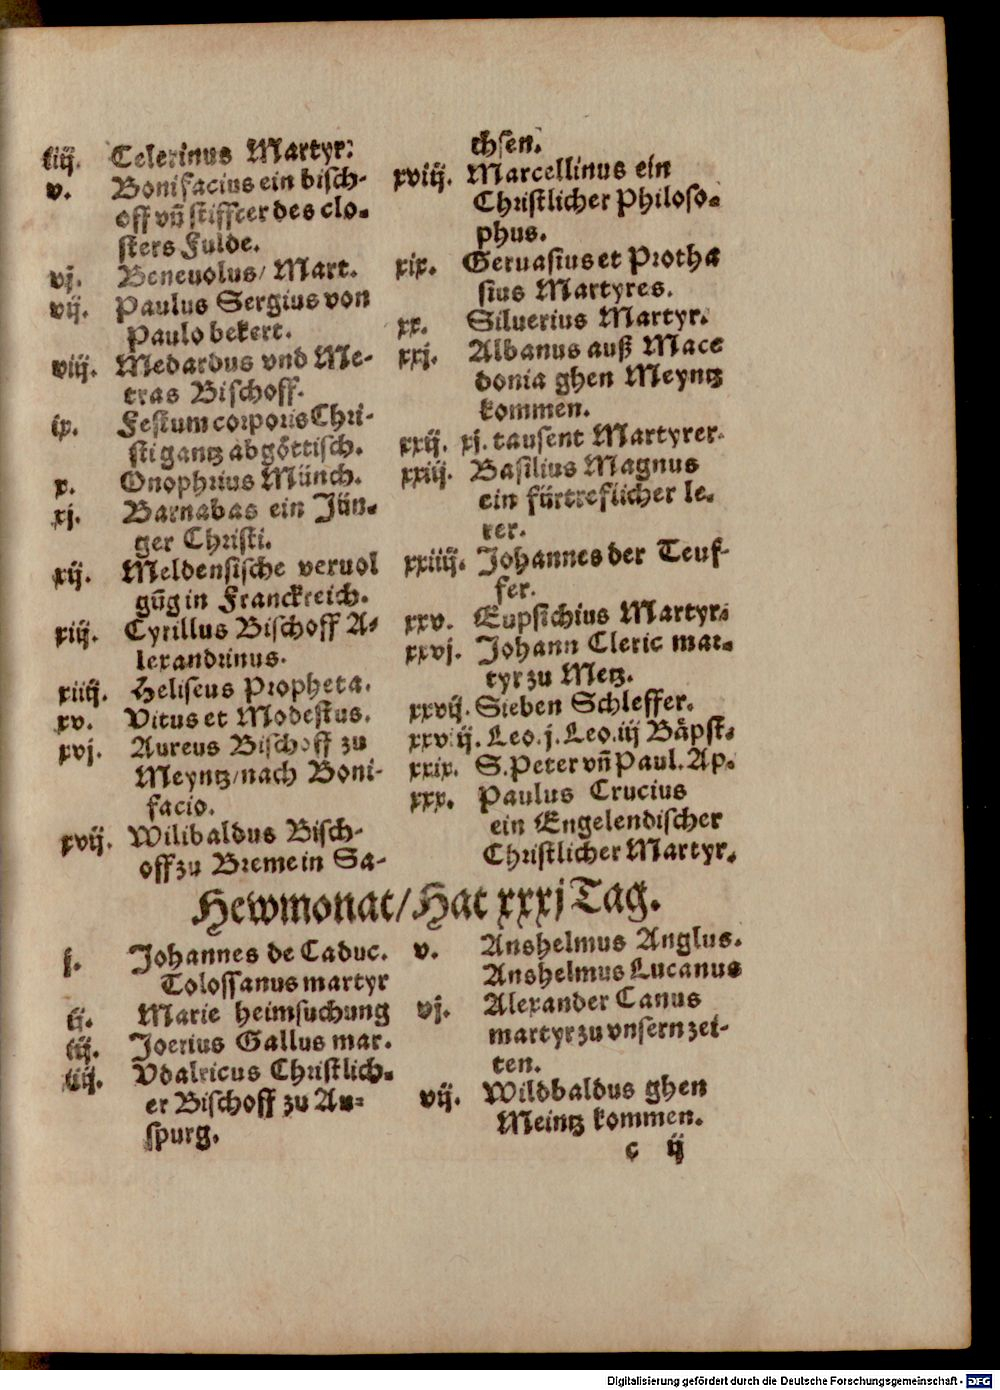 iiij. Celerinus Martyr.
v. Bonifacius ein bisch-
off vñ stiffter des clo-
sters Fulde.
vj. Beneuolus/ Mart.
vij. Paulus Sergius von
Paulo bekert.
viij. Medardus vnd Me-
tras Bischoff.
ix. Festum corporis Chri-
sti gantz abgöttisch.
x. Onophrius Münch.
xj. Barnabas ein Jün-
ger Christi.
xij. Meldensische veruol
gũg in Franckreich.
xiij. Cyrillus Bischoff A-
lexandrinus.
xiiij. Heliseus Propheta.
xv. Vitus et Modestus.
xvj. Aureus Bischoff zu
Meyntz/nach Boni-
facio.
xvij. Wilibaldus Bisch-
off zu Breme in Sa-
chsen.
xviij. Marcellinus ein
Christlicher Philoso-
phus.
xix. Geruasius et Protha
sius Martyres.
xx. Siluerius Martyr.
xxj. Albanus auß Mace
donia ghen Meyntz
kommen.
xxij. xj. tausent Martyrer.
xxiij. Basilius Magnus
ein fürtreflicher le-
rer.
xxiiij. Johannes der Teuf-
fer.
xxv. Eupsichius Martyr.
xxvj. Johann Cleric mar-
tyr zu Metz.
xxvij. Sieben Schleffer.
xxviij. Leo.j. Leo.iij Bäpst.
xxix. S. Peter vñ Paul. Ap.
xxx. Paulus Crucius
ein Engelendischer
Christlicher Martyr.
Hewmonat/Hat xxxj Tag.
j. Johannes de Caduc.
Tolossanus martyr
ij. Marie heimsuchung
iij. Joerius Gallus mar.
iiij. Vdalricus Christlich-
er Bischoff zu Au-
spurg.
v. Anshelmus Anglus.
Anshelmus Lucanus
vj. Alexander Canus
martyr zu vnsern zei-
ten.
vij. Wildbaldus ghen
Meintz kommen.
c ij
Digitalisierung gefördert durch die Deutsche Forschungsgemeinschaft - DFG